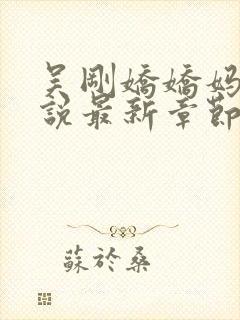 吴刚嬌嬌妈
說最新章節
蘇於桑